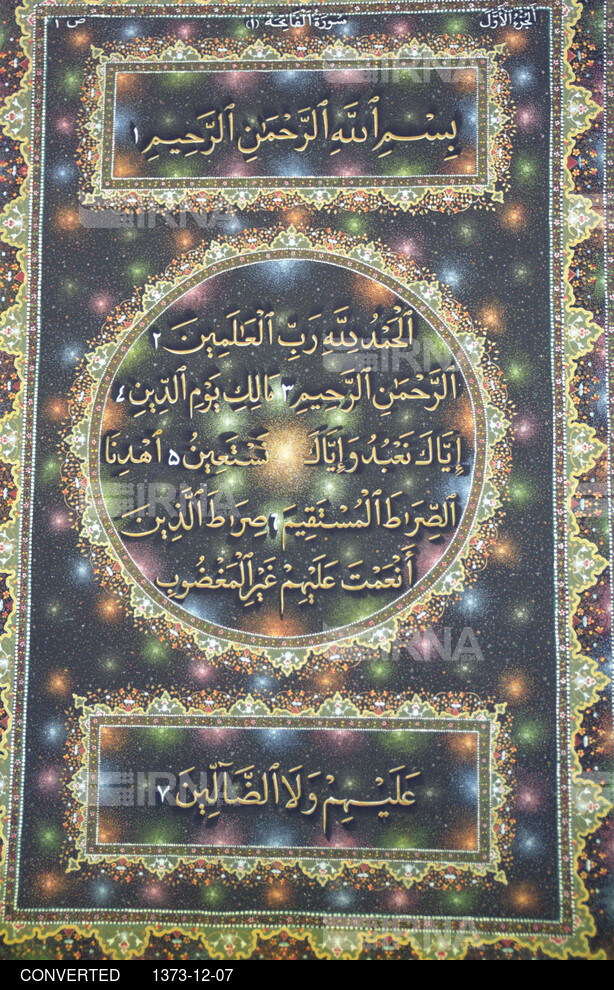 الجزء الأول
سورة الفاتحة (١)
ص ١
بِسْمِ ٱللَّهِ ٱلرَّحْمَٰنِ ٱلرَّحِيمِ ١
ٱلْحَمْدُ لِلَّهِ رَبِّ ٱلْعَٰلَمِينَ ٢
ٱلرَّحْمَٰنِ ٱلرَّحِيمِ ٣ مَٰلِكِ يَوْمِ ٱلدِّينِ ٤
إِيَّاكَ نَعْبُدُ وَإِيَّاكَ نَسْتَعِينُ ٥ ٱهْدِنَا
ٱلصِّرَاطَ ٱلْمُسْتَقِيمَ ٦ صِرَاطَ ٱلَّذِينَ
أَنْعَمْتَ عَلَيْهِمْ غَيْرِ ٱلْمَغْضُوبِ
عَلَيْهِمْ وَلَا ٱلضَّآلِّينَ ٧
IRNA
IRNA
IRNA
IRNA
IRNA
IRNA
IRNA
CONVERTED 1373-12-07